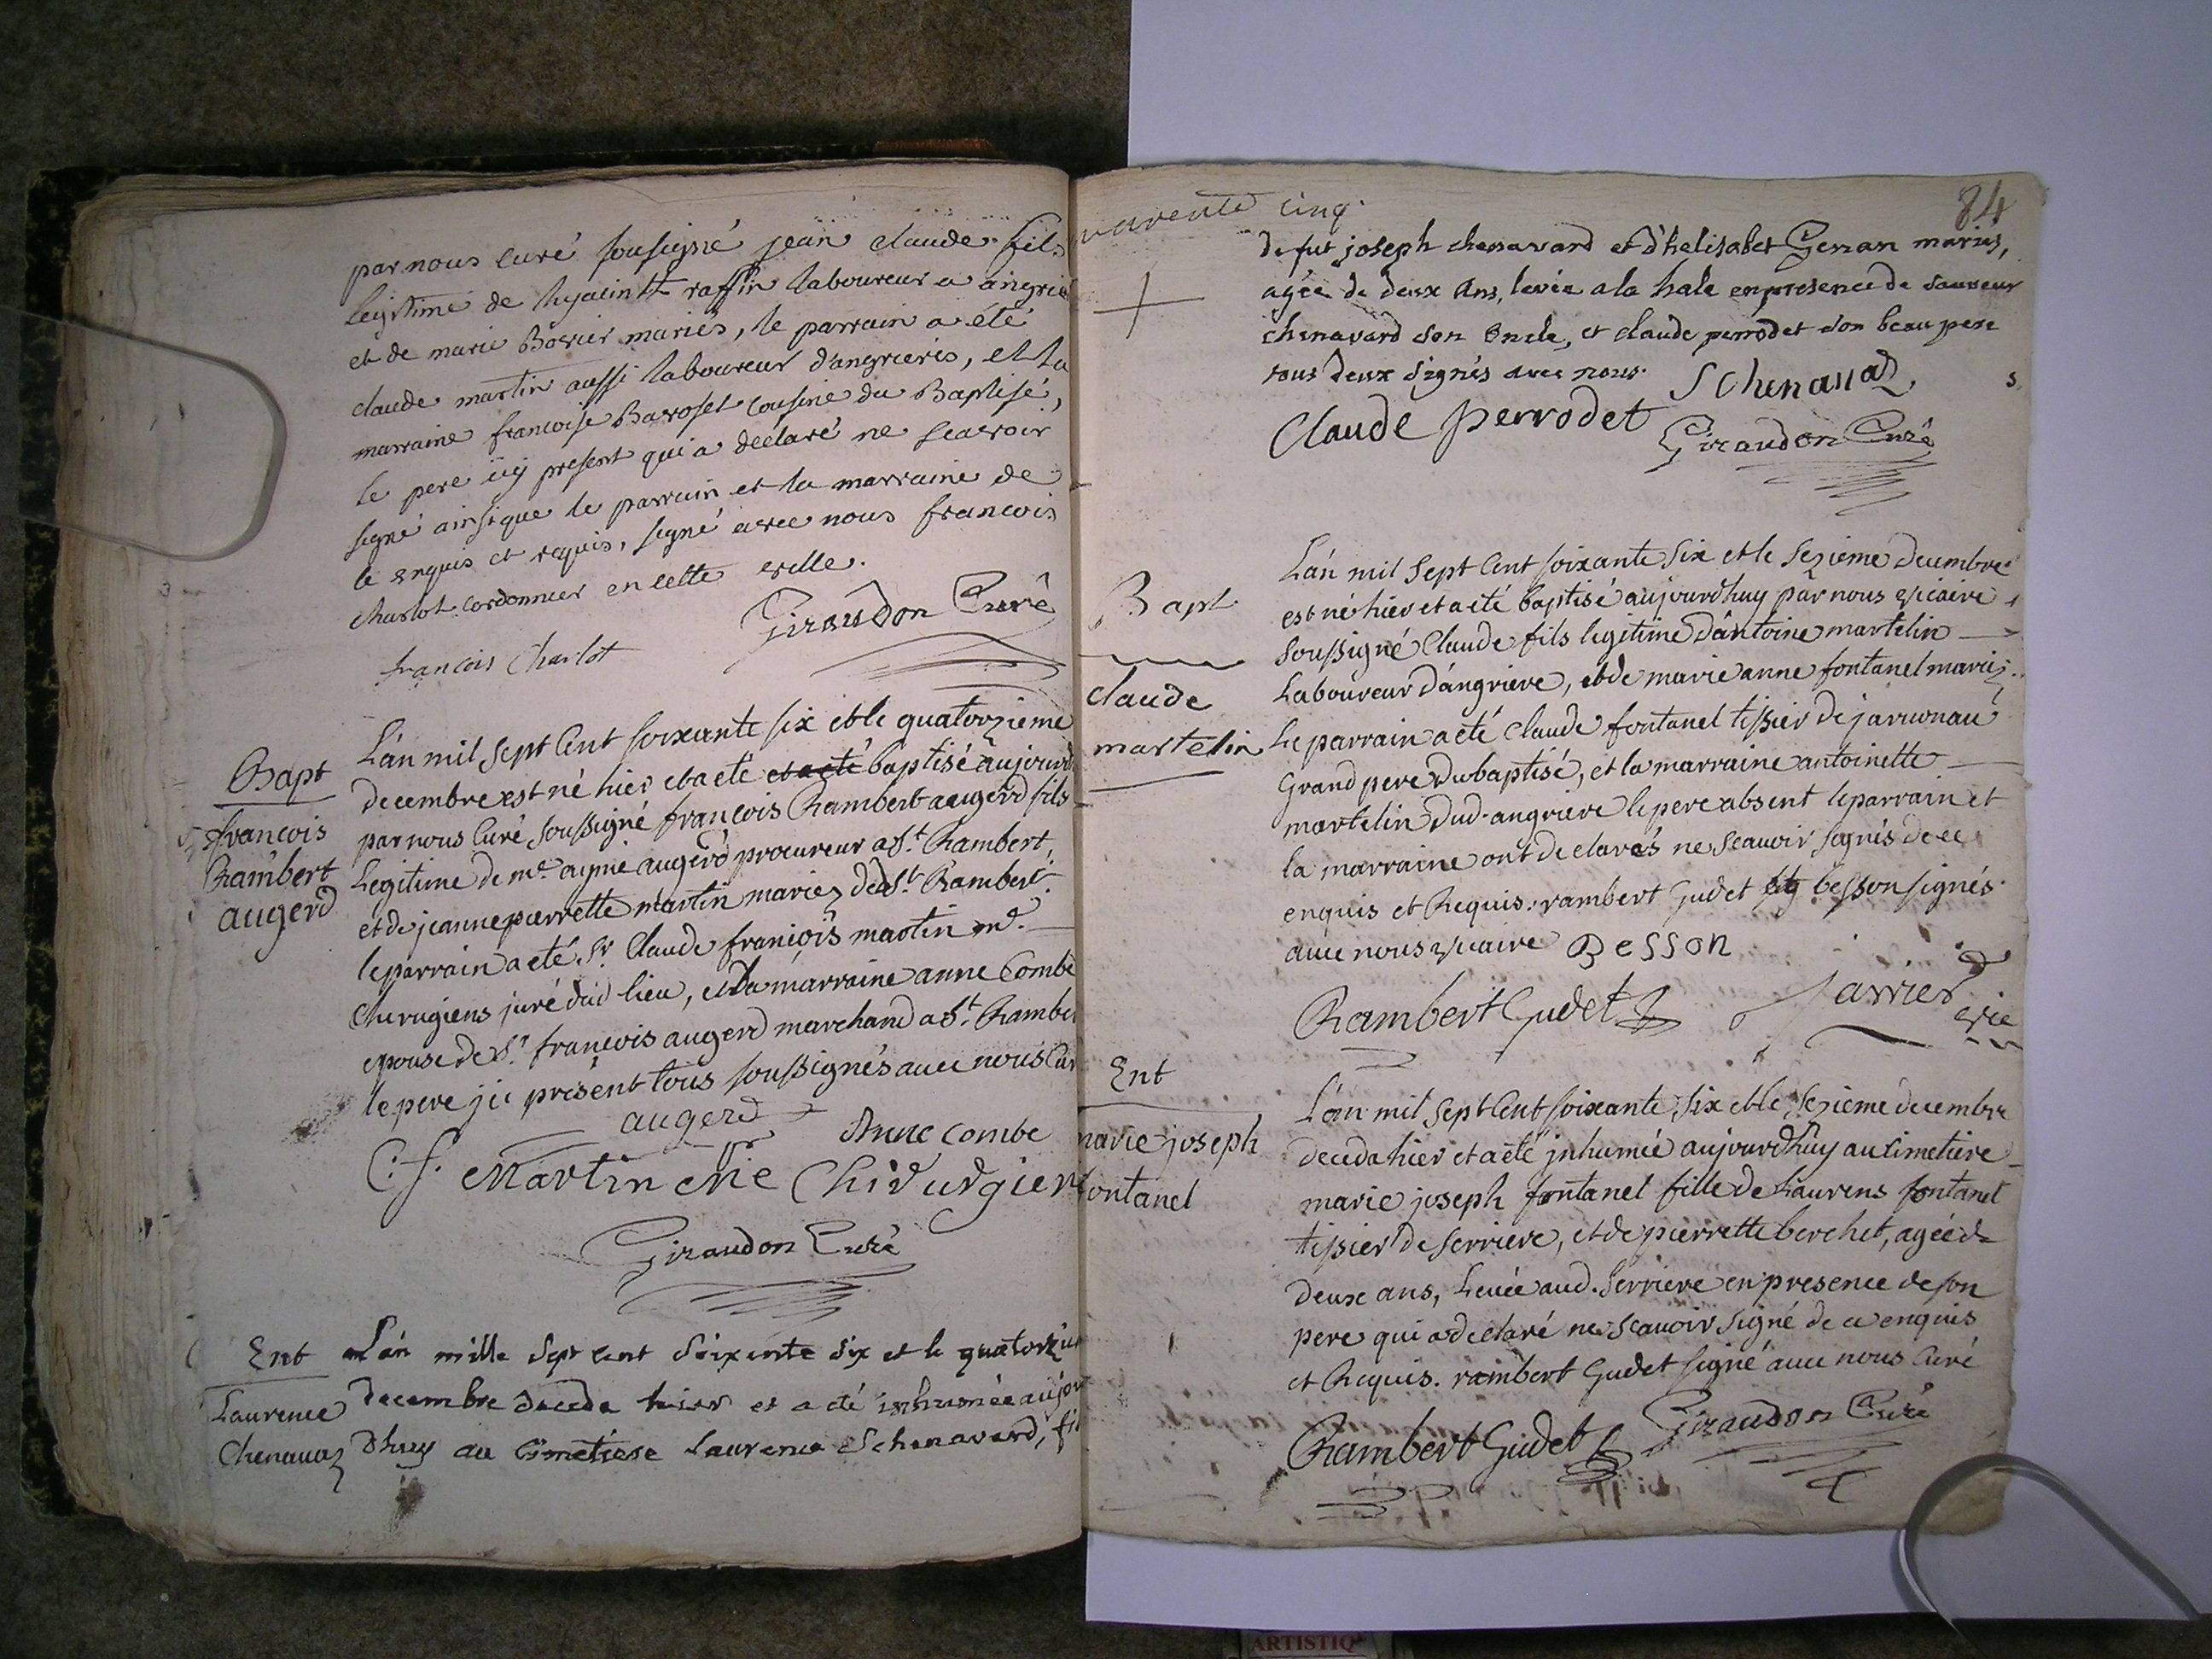 par nous curé soussigné jean claude fils
legitime de hyacinte raffin laboureur a angrie
et de marie Bovier mariés, le parrain a été
claude martin aussi laboureur d'angrieres, et la
marraine francoise Baroset cousine du Baptisé,
le pere icy present qui a déclaré ne scavoir
signé ainsique le parrain et la marraine de
ce enquis et requis, signé avec nous francois
charlot cordonnier en cette ville.
francois Charlot
Giraudon Curé
Bapt
francois
Rambert
augerd
L'an mil sept Cent soixante six et le quatorzieme
decembre est né hier et a eté et a eté baptisé aujourd
par nous Curé soussigné françois Rambert augerd fils
Legitime de me. aymé augerd procureur a St. Rambert,
et de jeanne pierrette martin mariez dud St. Rambert.
le parrain a eté Sr. Claude françois martin me.
Chirugiens juré dud lieu, et la marraine anne Combe
epouse de Sr. francois augerd marchand a St. Rambe
le pere jci présent tous soussignés avec nous Cur
augerd
Anne combe
C. f. Martin Me Chirurgien
Giraudon Curé
Ent
Laurence
Chenavaz
L'an mille sept cent soixente six et le quatorziem
decembre deceda hier et a eté inhumée aujour
dhuy au cimetiere laurence Schenavard, fil
uarente cinq.
84
de fut joseph chenavard et d'helisabet Genan mariés,
agée de deux ans, levée a la hale en presence de sauveur
chenavard son oncle, et claude perrodet son beau pere
tous deux signés avec nous.
S Chenavaz
Claude perrodet
Giraudon Curé
Bapt
claude
martelin
L'an mil sept Cent soixante six et le sezieme decembre
est né hier et a eté baptisé aujourd'huy par nous vicaire
soussigné Claude fils legitime d'antoine martelin
Laboureur d'angriere, et de marie anne fontanel mariez
Le parrain a eté Claude fontanel tissier de jarvonau
Grand pere du baptisé, et la marraine antoinette
martelin dud. angriere le pere absent le parrain et
la marraine ont declarés ne scauoir signés de ce
enquis et Requis. rambert Gudet et besson signés
avec nous vicaire
Besson
Rambert Gudet
Jarrier vic
Ent
marie joseph
fontanel
L'an mil sept Cent soixante six et le sezieme decembre
deceda hier et a eté jnhumée aujourdhuy au cimetiere
marie joseph fontanel fille de Laurens fontanel
tissier de serriere, et de pierrette berchet, agée de
deux ans, Levée aud. serriere en presence de son
pere qui a declaré ne scauoir signé de ce enquis
et Requis. rambert Gudet signé avec nous Curé
Rambert Gudet
Giraudon Curé
ARTISTIQ